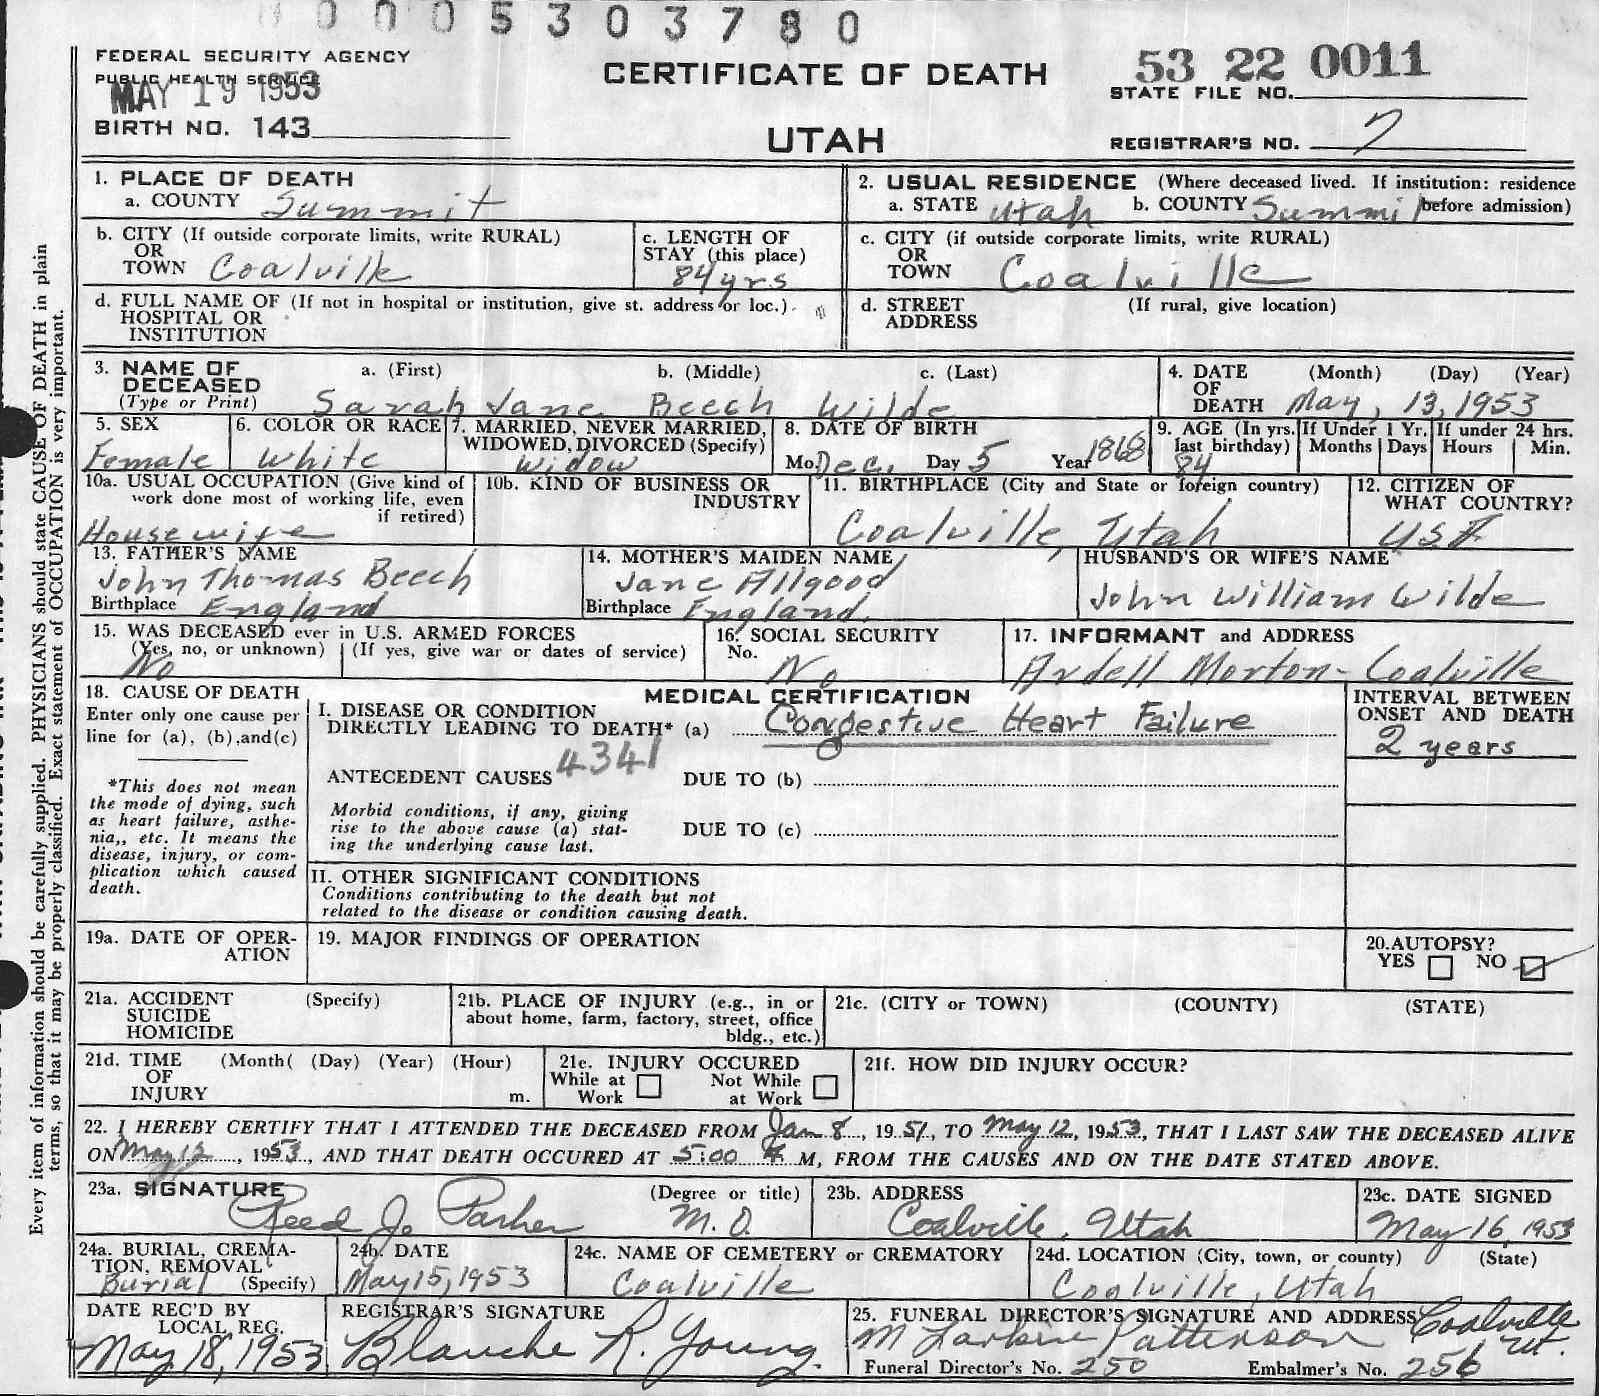 0005303780
FEDERAL SECURITY AGENCY
PUBLIC HEALTH SERVICE
MAY 19 1953
BIRTH NO. 143
CERTIFICATE OF DEATH
UTAH
53 22 0011
STATE FILE NO.
REGISTRAR'S NO. 7
1. PLACE OF DEATH
a. COUNTY Summit
2. USUAL RESIDENCE (Where deceased lived. If institution: residence
a. STATE Utah b. COUNTY Summit before admission)
b. CITY (If outside corporate limits, write RURAL)
OR
TOWN Coalville
c. LENGTH OF
STAY (this place)
84 yrs
c. CITY (if outside corporate limits, write RURAL)
OR
TOWN Coalville
d. FULL NAME OF (If not in hospital or institution, give st. address or loc.)
HOSPITAL OR
INSTITUTION
d. STREET (If rural, give location)
ADDRESS
3. NAME OF a. (First) b. (Middle) c. (Last)
DECEASED
(Type or Print) Sarah Jane Beech Wilde
4. DATE (Month) (Day) (Year)
OF
DEATH May, 13, 1953
5. SEX
Female
6. COLOR OR RACE
White
7. MARRIED, NEVER MARRIED,
WIDOWED, DIVORCED (Specify)
Widow
8. DATE OF BIRTH
Mo. Dec. Day 5 Year 1868
9. AGE (In yrs.
last birthday)
84
If Under 1 Yr.
Months Days
If under 24 hrs.
Hours Min.
10a. USUAL OCCUPATION (Give kind of
work done most of working life, even
if retired)
Housewife
10b. KIND OF BUSINESS OR
INDUSTRY
11. BIRTHPLACE (City and State or foreign country)
Coalville, Utah
12. CITIZEN OF
WHAT COUNTRY?
USA
13. FATHER'S NAME
John Thomas Beech
Birthplace England
14. MOTHER'S MAIDEN NAME
Jane Allgood
Birthplace England.
HUSBAND'S OR WIFE'S NAME
John William Wilde
15. WAS DECEASED ever in U.S. ARMED FORCES
(Yes, no, or unknown) (If yes, give war or dates of service)
No
16. SOCIAL SECURITY
No.
No
17. INFORMANT and ADDRESS
Ardell Morton - Coalville
18. CAUSE OF DEATH
Enter only one cause per
line for (a), (b), and (c)
*This does not mean
the mode of dying, such
as heart failure, asthe-
nia,, etc. It means the
disease, injury, or com-
plication which caused
death.
MEDICAL CERTIFICATION
I. DISEASE OR CONDITION
DIRECTLY LEADING TO DEATH* (a) Congestive Heart Failure
4341
ANTECEDENT CAUSES DUE TO (b)
Morbid conditions, if any, giving
rise to the above cause (a) stat-
ing the underlying cause last.
DUE TO (c)
II. OTHER SIGNIFICANT CONDITIONS
Conditions contributing to the death but not
related to the disease or condition causing death.
INTERVAL BETWEEN
ONSET AND DEATH
2 years
19a. DATE OF OPER-
ATION
19. MAJOR FINDINGS OF OPERATION
20. AUTOPSY?
YES NO
21a. ACCIDENT (Specify)
SUICIDE
HOMICIDE
21b. PLACE OF INJURY (e.g., in or
about home, farm, factory, street, office
bldg., etc.)
21c. (CITY or TOWN) (COUNTY) (STATE)
21d. TIME (Month( (Day) (Year) (Hour)
OF
INJURY m.
21e. INJURY OCCURED
While at Work Not While at Work
21f. HOW DID INJURY OCCUR?
22. I HEREBY CERTIFY THAT I ATTENDED THE DECEASED FROM Jan 8, 1951, TO May 12, 1953, THAT I LAST SAW THE DECEASED ALIVE
ON May 12, 1953, AND THAT DEATH OCCURED AT 5:00 A M, FROM THE CAUSES AND ON THE DATE STATED ABOVE.
23a. SIGNATURE (Degree or title)
Reed J. Parker M.D.
23b. ADDRESS
Coalville, Utah
23c. DATE SIGNED
May 16, 1953
24a. BURIAL, CREMA-
TION, REMOVAL
Burial (Specify)
24b. DATE
May 15, 1953
24c. NAME OF CEMETERY or CREMATORY
Coalville
24d. LOCATION (City, town, or county) (State)
Coalville, Utah
DATE REC'D BY
LOCAL REG.
May 18, 1953
REGISTRAR'S SIGNATURE
Blanche R. Young.
25. FUNERAL DIRECTOR'S SIGNATURE AND ADDRESS
M Larkin Patterson Coalville Ut.
Funeral Director's No. 250 Embalmer's No. 256
Every item of information should be carefully supplied. PHYSICIANS should state CAUSE OF DEATH in plain
terms, so that it may be properly classified. Exact statement of OCCUPATION is very important.